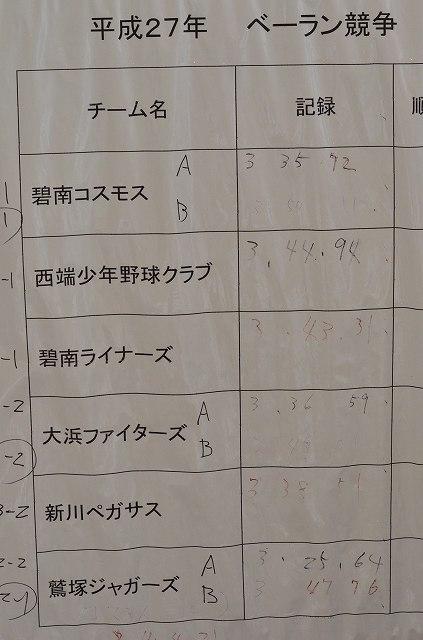 平成27年 ベーラン競争
チーム名 記録 順
碧南コスモス A 3 35 72
B
西端少年野球クラブ 3.44.94
碧南ライナーズ 3.43.31
大浜ファイターズ A 3.36 59
B
新川ペガサス 3 38 51
鷲塚ジャガーズ A 3.25.64
B 3 47 76